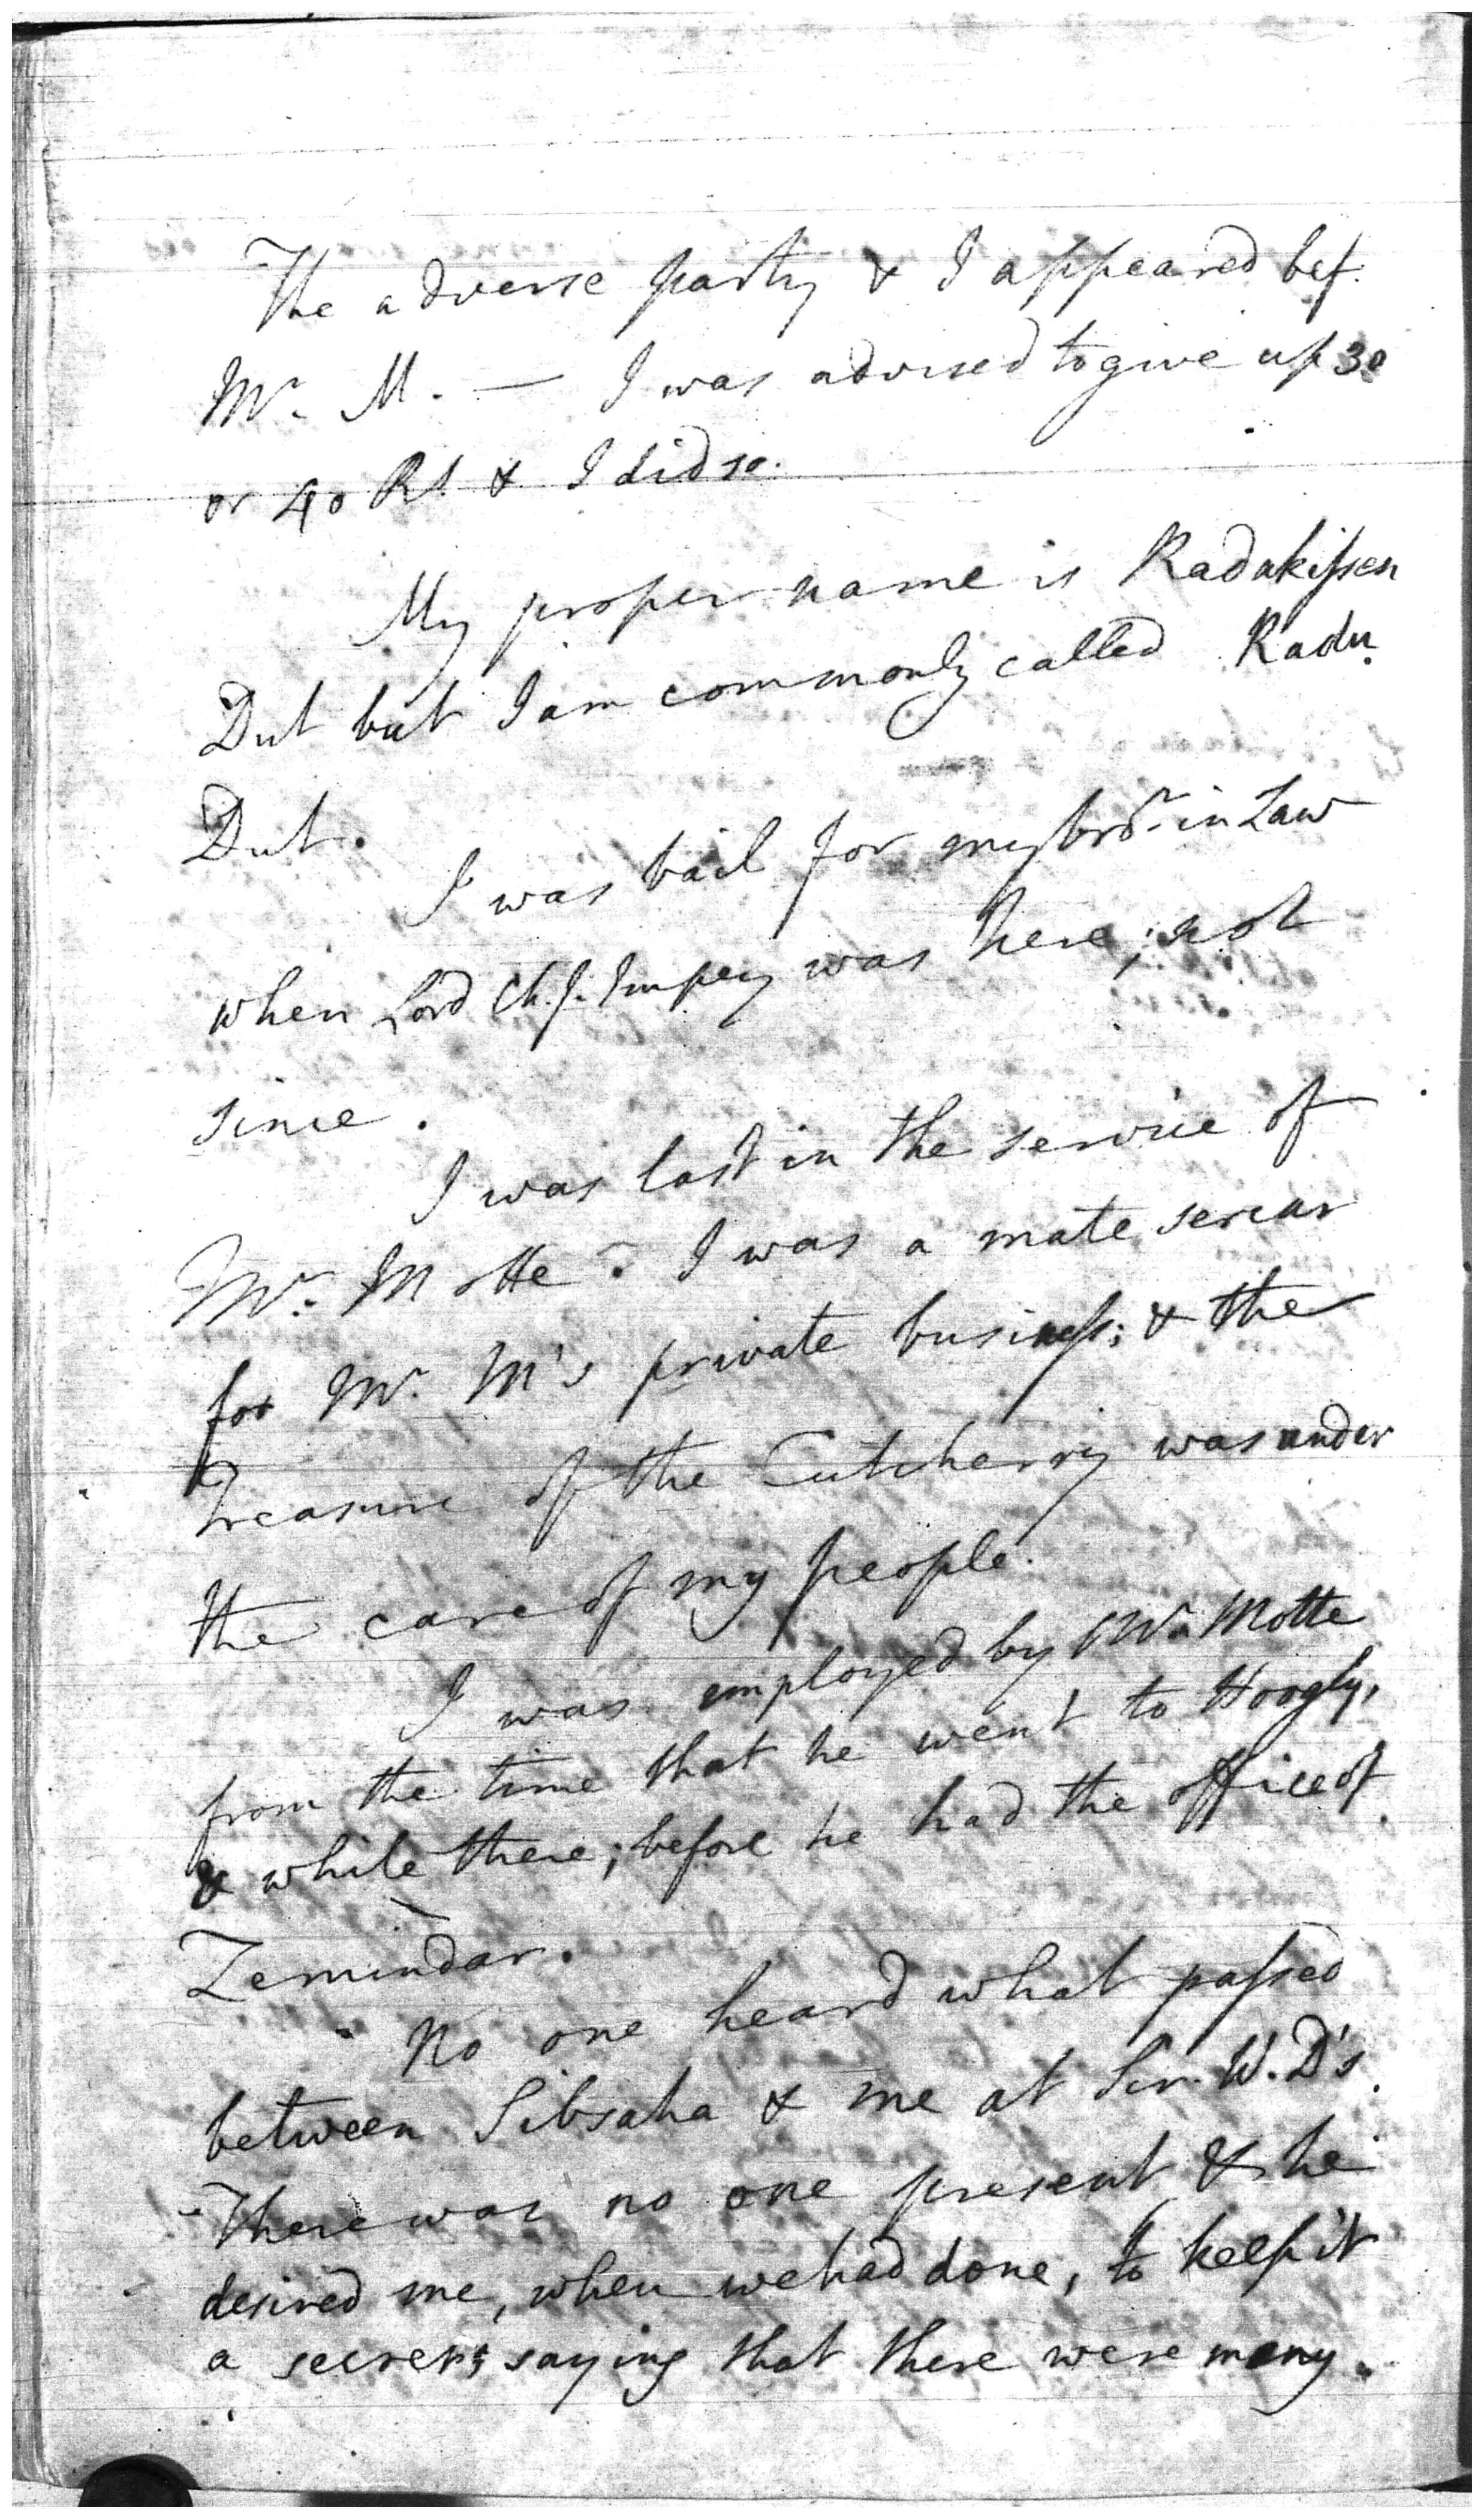 The adverse party & I appeared bef.
Mr. M. — I was advised to give up 30
or 40 Rs. & I did so.
My proper name is Radakissen
Dut but I am commonly called Radu
Dut.
I was bail for my brr. in Law
when Lord Ch. J. Impey was here; not
since.
I was last in the service of
Mr. Motte. I was a mate sercar
for Mr. M's private business; & the
Treasure of the Cutcherry was under
the care of my people.
I was employed by Mr. Motte
from the time that he went to Hoogly,
& while there; before he had the office of
Zemindar.
No one heard what passed
between Sibsaha & me at Sir W. D's.
There was no one present & he
desired me, when we had done, to keep it
a secret; saying that there were many